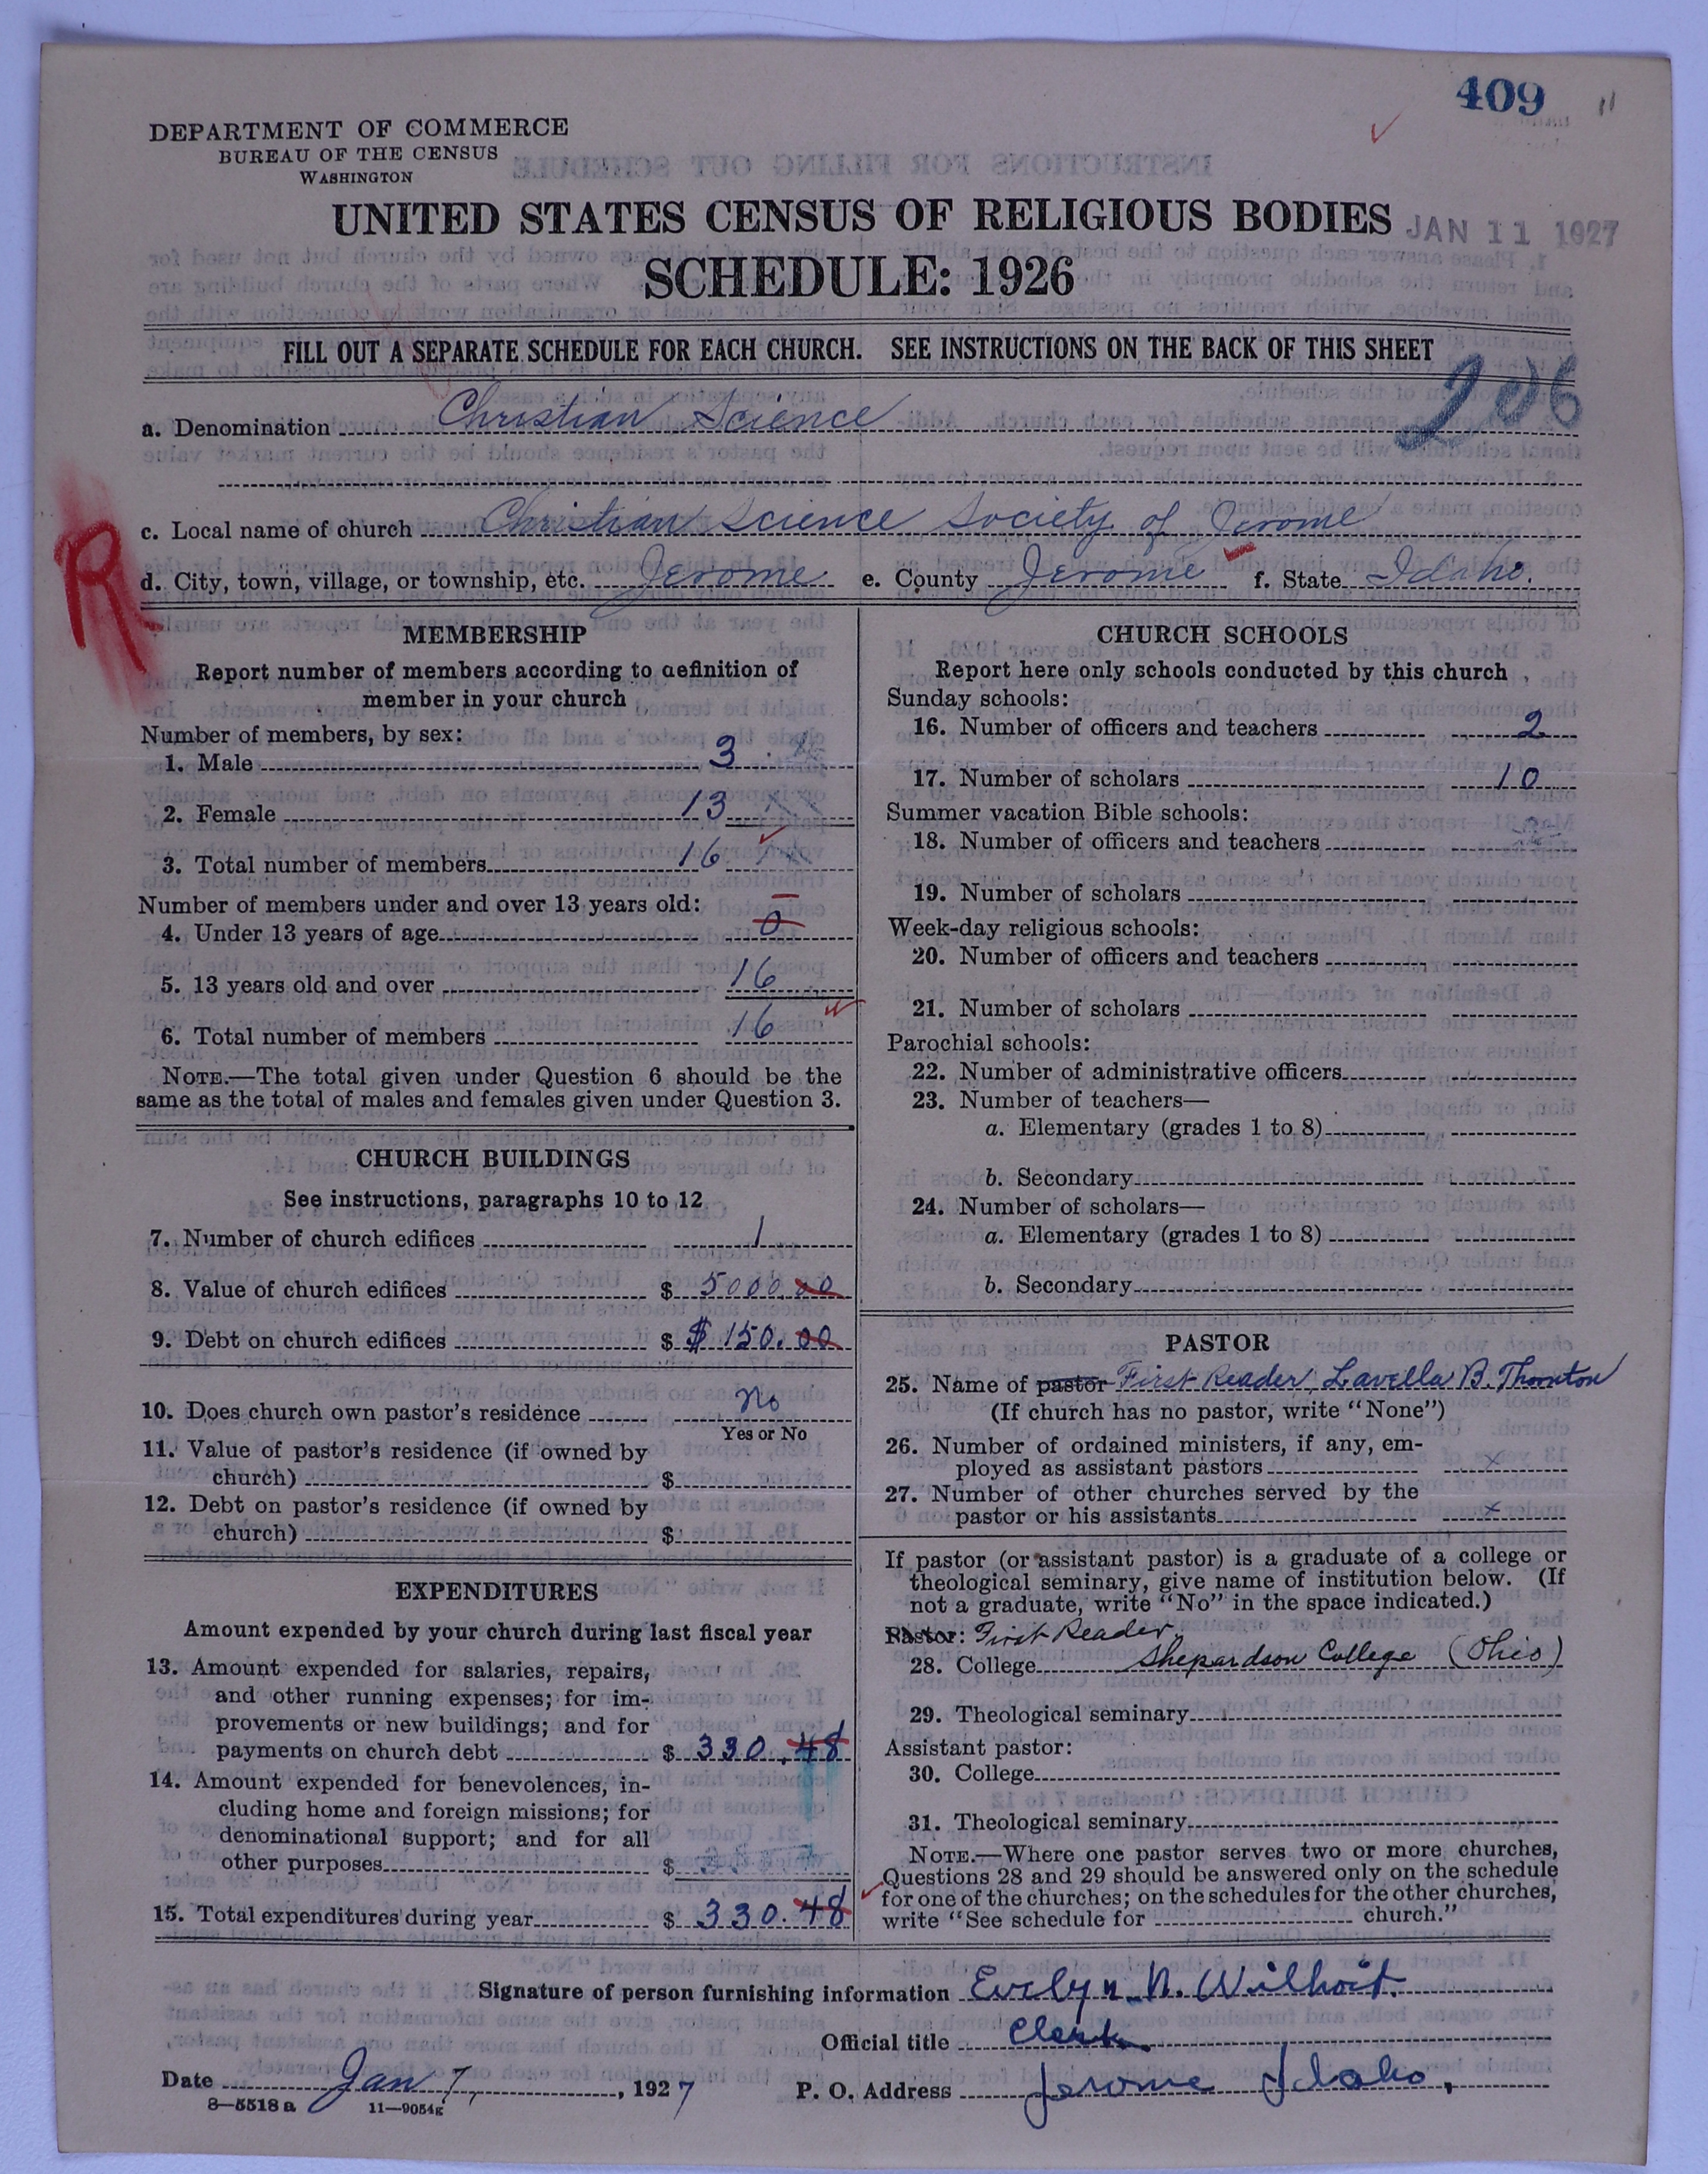 409
DEPARTMENT OF COMMERCE
BUREAU OF THE CENSUS
WASHINGTON
UNITED STATES CENSUS OF RELIGIOUS BODIES
JAN 11 1927
SCHEDULE: 1926
FILL OUT A SEPARATE SCHEDULE FOR EACH CHURCH. SEE INSTRUCTIONS ON THE BACK OF THIS SHEET
206
a. Denomination Christian Science
R
c. Local name of church Christian Science Society of Jerome
d. City, town, village, or township, etc. Jerome e. County Jerome f. State Idaho.
MEMBERSHIP
Report number of members according to definition of
member in your church
Number of members, by sex:
1. Male 3
2. Female 13
3. Total number of members 16
Number of members under and over 13 years old:
4. Under 13 years of age 0
5. 13 years old and over 16
6. Total number of members 16
NOTE.—The total given under Question 6 should be the
same as the total of males and females given under Question 3.
CHURCH BUILDINGS
See instructions, paragraphs 10 to 12
7. Number of church edifices 1
8. Value of church edifices $ 5000.00
9. Debt on church edifices $ $ 150.00
10. Does church own pastor's residence No
Yes or No
11. Value of pastor's residence (if owned by
church) $
12. Debt on pastor's residence (if owned by
church) $
EXPENDITURES
Amount expended by your church during last fiscal year
13. Amount expended for salaries, repairs,
and other running expenses; for im-
provements or new buildings; and for
payments on church debt $ 330.48
14. Amount expended for benevolences, in-
cluding home and foreign missions; for
denominational support; and for all
other purposes $
15. Total expenditures during year $ 330.48
CHURCH SCHOOLS
Report here only schools conducted by this church
Sunday schools:
16. Number of officers and teachers 2
17. Number of scholars 10
Summer vacation Bible schools:
18. Number of officers and teachers
19. Number of scholars
Week-day religious schools:
20. Number of officers and teachers
21. Number of scholars
Parochial schools:
22. Number of administrative officers
23. Number of teachers—
a. Elementary (grades 1 to 8)
b. Secondary
24. Number of scholars—
a. Elementary (grades 1 to 8)
b. Secondary
PASTOR
25. Name of pastor First Reader, Lavella B. Thornton
(If church has no pastor, write "None")
26. Number of ordained ministers, if any, em-
ployed as assistant pastors x
27. Number of other churches served by the
pastor or his assistants x
If pastor (or assistant pastor) is a graduate of a college or
theological seminary, give name of institution below. (If
not a graduate, write "No" in the space indicated.)
Pastor: First Reader.
28. College Shepardson College (Ohio)
29. Theological seminary
Assistant pastor:
30. College
31. Theological seminary
NOTE.—Where one pastor serves two or more churches,
Questions 28 and 29 should be answered only on the schedule
for one of the churches; on the schedules for the other churches,
write "See schedule for church."
Signature of person furnishing information Evelyn N. Wilhoit.
Official title Clerk
Date Jan 7, 1927 P. O. Address Jerome Idaho,
8—5518 a 11—9054g